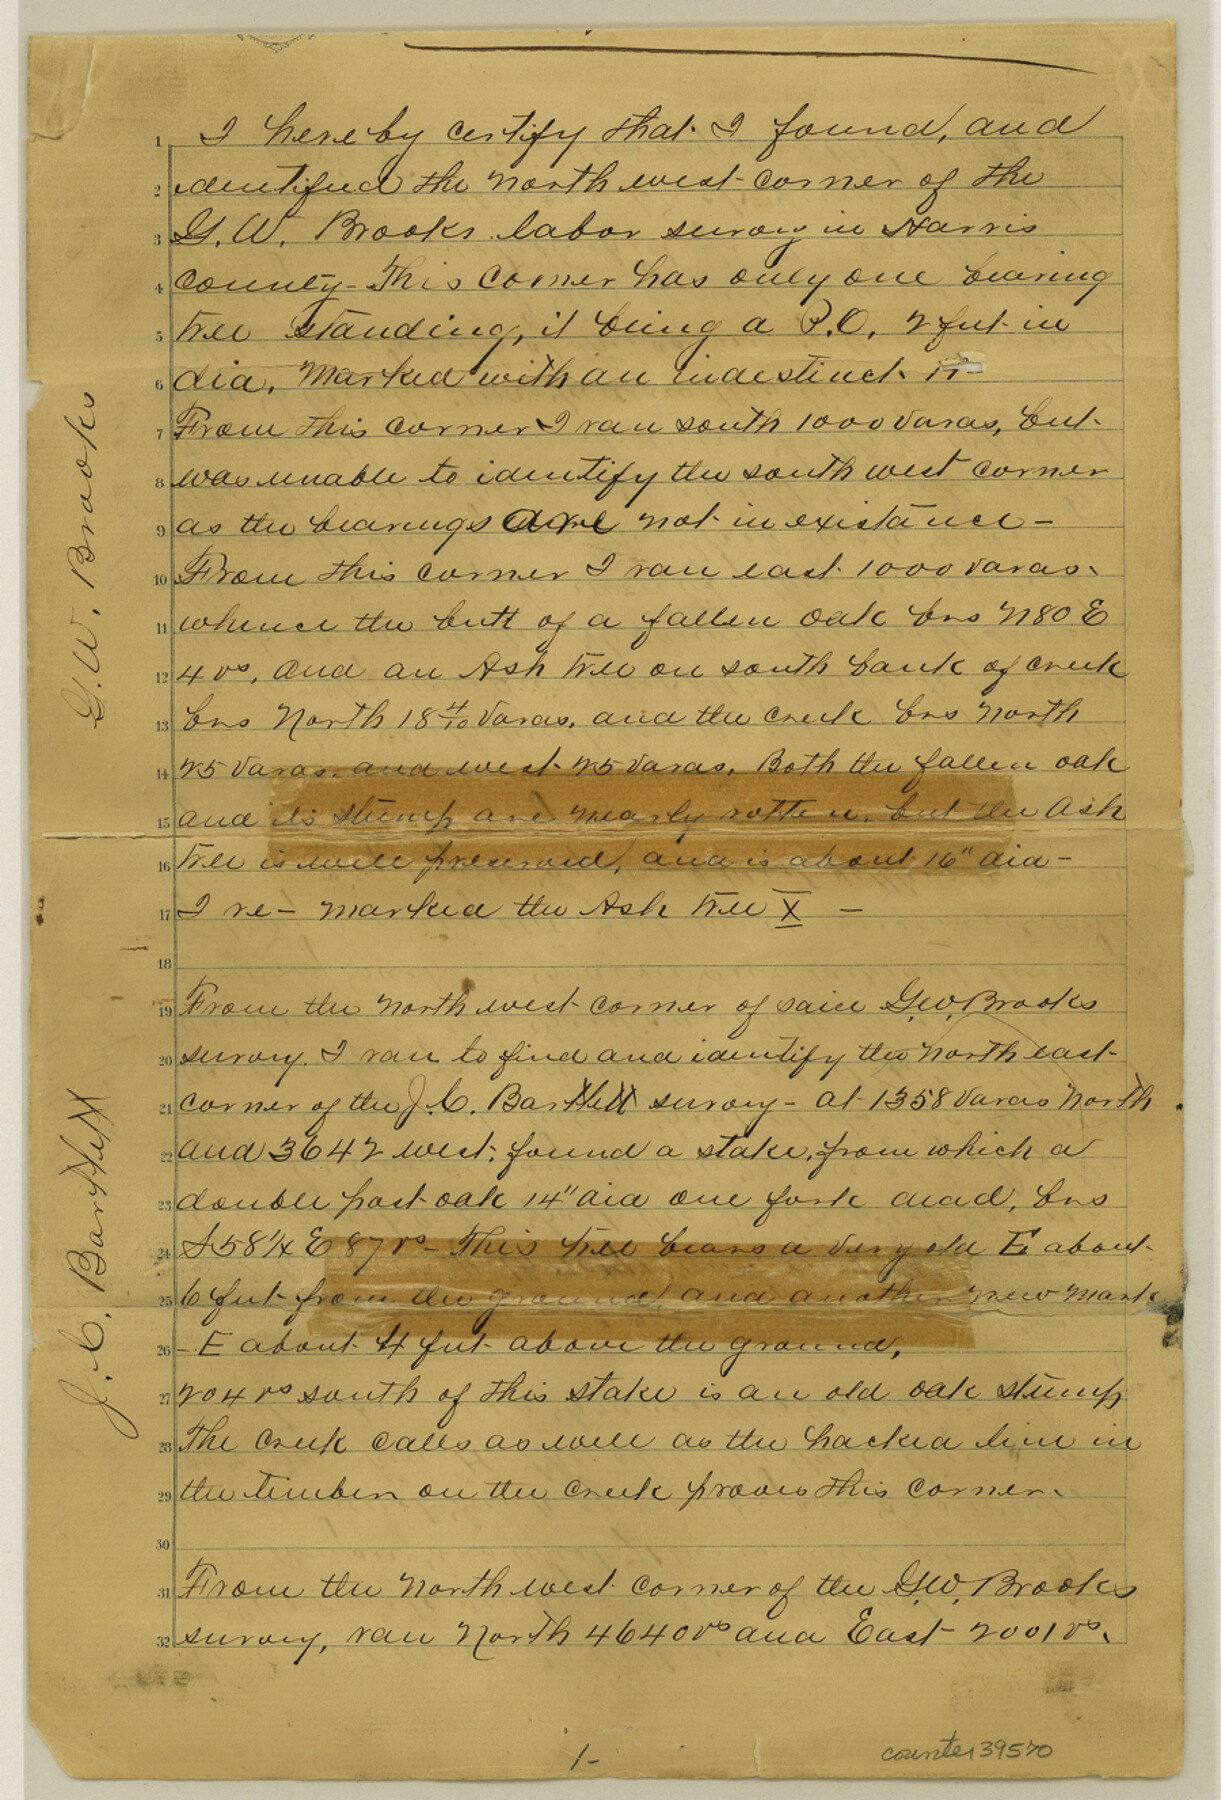 1 I hereby certify that I found, and
2 identified the north west corner of the
3 G. W. Brooks labor survey in Harris
4 county - This corner has only one bearing
5 tree standing, it being a P.O, 2 feet in
6 dia, Marked with an indestinct
7 From this corner I ran south 1000 varas, but
8 was unable to identify the south west corner
9 as the bearings are not in existance -
10 From this corner I ran east 1000 varas.
11 whence the butt of a fallen oak brs N80 E
12 4 vs, and an Ash tree on south bank of creek
13 brs North 18 4/10 varas, and the creek brs north
14 25 varas. and west 25 varas. Both the fallen oak
15 and its stump are nearly rotten, but the Ash
16 tree is well preserved, and is about 16" dia -
17 I re- marked the Ash tree X -
18
19 From the north west corner of said G.W. Brooks
20 survey. I ran to find and identify the north east
21 corner of the J. C. Bartlett survey - at 1358 varas North
22 and 3642 west, found a stake, from which a
23 double post oak 14" dia one fork dead, brs
24 S 58 1/4 E 87 vs - This tree bears a very old E about
25 6 feet from the ground, and another new mark
26 - E about 4 feet above the ground,
27 204 vs south of this stake is an old oak stump
28 The creek calls as well as the hacked line in
29 the timber on the creek proves this corner.
30
31 From the north west corner of the G.W. Brooks
32 survey, ran North 4640 vs and East 2001 vs.
G. W. Brooks
J. C. Bartlett
1-
counter 39570